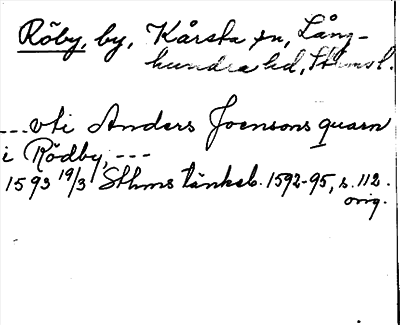 Röby, by, Kårsta sn, Lång-
hundra hd, Sthms l.
--- vti Anders Joensons quarn
i Rödby, ---
1593 19/3 Sthms tänkeb. 1592-95, s. 112.
orig.